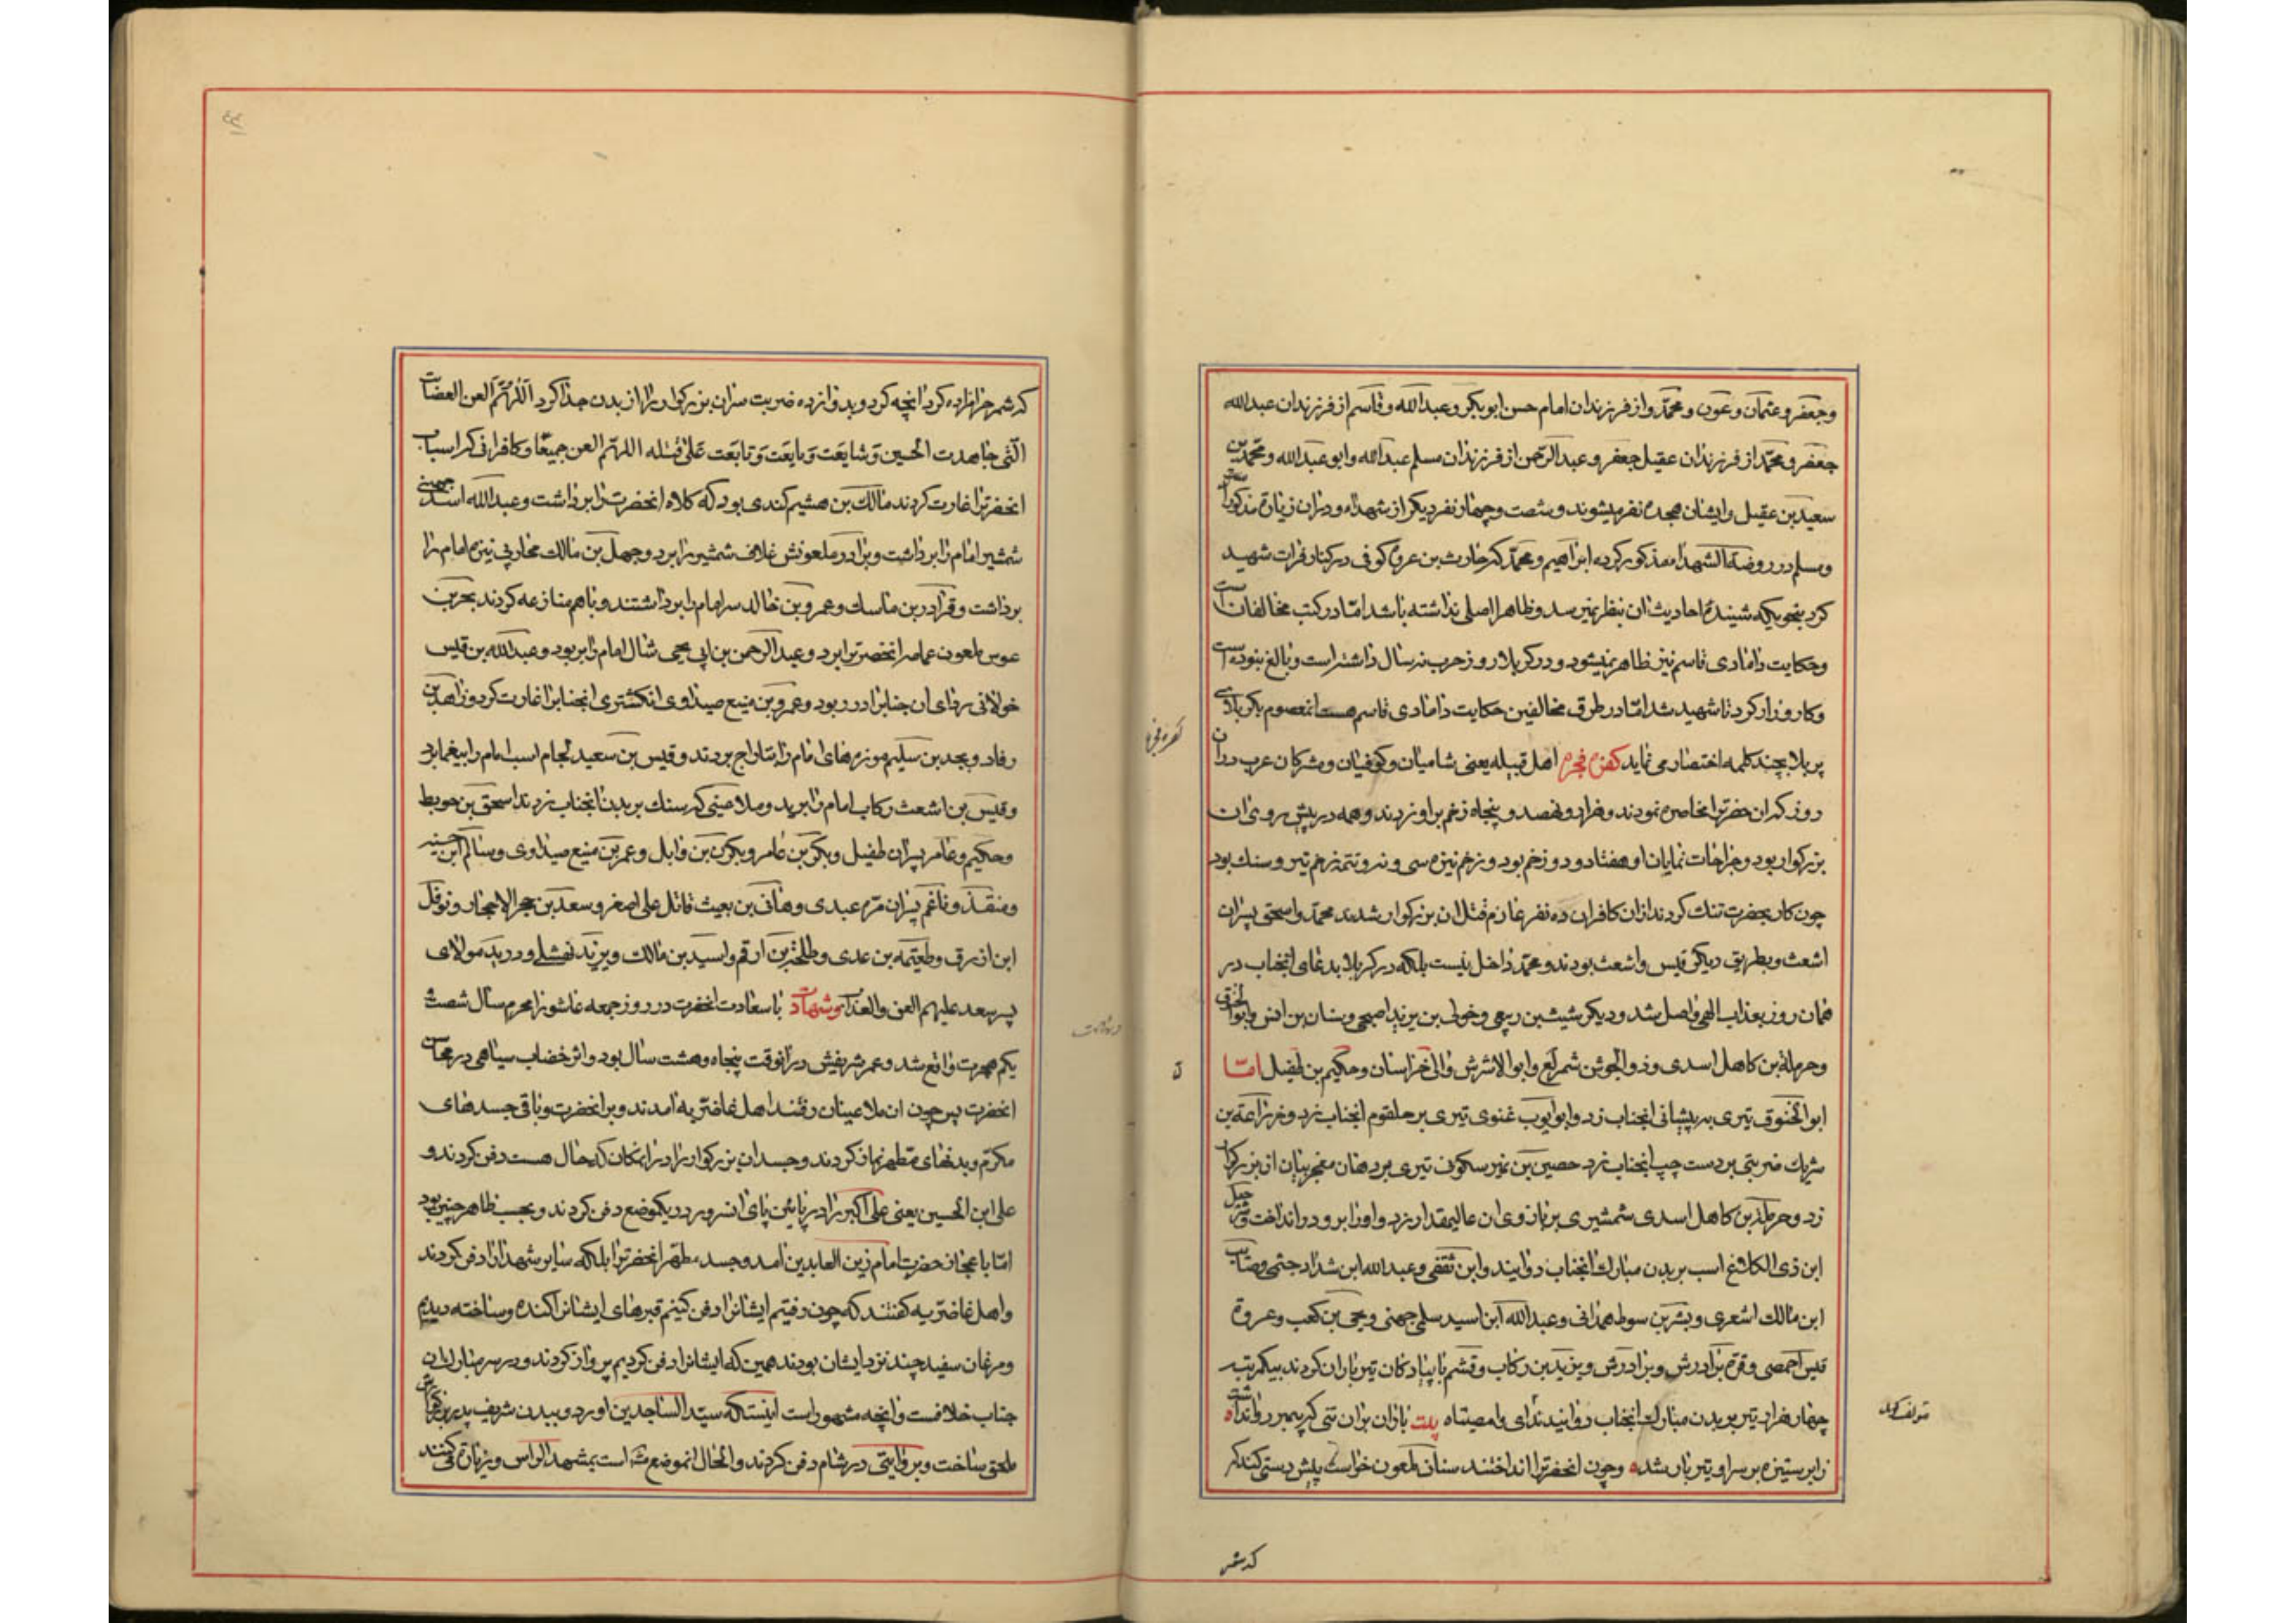 وجعفر وعثمان وعون ومحمد واز فرزندان امام حسن ابوبکر وعبدالله وقاسم از فرزندان عبدالله
جعفر ومحمد از فرزندان عقیل جعفر وعبدالرحمن از فرزندان مسلم عبدالله وابوعبدالله ومحمد بن
سعید بن عقیل وایشان هجده نفر میشوند وشصت وچهار نفر دیکر از شهداء ودران زیارة مذکور
ومسلم در روضة الشهداء مذکور کرده ابراهیم ومحمد که حارث بن عروه کوفی در کنار فرات شهید
کرد بنحویکه شنیدۀ احادیث ان بنظر نمیرسد وظاهرا اصلی نداشته باشد امّا در کتب مخالفان است
وحکایت دامادی قاسم نیز ظاهر نمیشود ودر کربلا روز حرب نه سال داشته است وبالغ نبوده است
وکارزار کرد تا شهید شد امّا در طرق مخالفین حکایت دامادی قاسم هست انمعصوم بکربلای
پر بلا بچند کلمه اختصار می نماید کفره فجره اهل قبیله یعنی شامیان وکوفیان ومشرکان عرب دران
روز که ان حضرترا محاصره نمودند وهزار ونهصد وپنجاه زخم براو زدند وهمه در پیش روی ان
بزرکوار بود وجراحات نمایان او هفتاد ودو زخم بود وزخم نیزه سی وسه وتتمه زخم تیر وسنك بود
چون کار بحضرت تنك کردند ازان کافران ده نفر عازم قتل ان بزرکوار شدند محمد واسحق پسران
اشعث وبطریق دیکر قیس واشعث بودند ومحمد داخل نیست بلکه در کربلا بدعای انجناب در
همان روز بعذاب الهی واصل شد ودیکر شیث بن ربعی وخولی بن یزید اصبحی وسنان بن انس وابوالخنوق
وحرملة بن کاهل اسدی وذوالجوشن شمر لع وابوالاشرش والی خراسان وحکیم بن طفیل امّا
ابوالخنوق تیری بر پیشانی انجناب زد وابوایوب غنوی تیری بر حلقوم انجناب زد وزراعة بن
شریك ضربتی بر دست چپ انجناب زد حصین بن نمیر سکونی تیری بر دهان معجز بیان ان بزرکوار
زد وحرملة بن کاهل اسدی شمشیری بر بازوی ان عالیمقدار زد واورا برو در انداخت
ابن ذی الکلاع اسب بر بدن مبارك انجناب دوانید وابن ثقفی وعبدالله ابن شداد جشمی
ابن مالك اشعری وبشر بن سوط همدانی وعبدالله ابن اسید سلمی جهنی ویحیی بن کعب وعروة
قیس احمصی وقره برادرش وبرادرش ویزید بن رکاب وقشم با پیادکان تیر باران کردند بیکمرتبه
چهار هزار تیر بر بدن مبارك انجناب دوانیدند ای وامصیبتاه بیت باران بران تنی که پیمبر روا نداشت
زابر ستیزه بر سر او تیر باران شد وچون انحضرترا انداختند سنان ملعون خواست پیش دستی کند که
که شمر
مؤلف کوید
کفره فجره
که شمر حرامزاده کرد انچه کرد وبدوازده ضربت سر ان بزرکوار را از بدن جدا کرد اللهم العن العصابة
الّتی جاهدت الحسین وشایعت وبایعت وتابعت علی قتله اللهم العن جمیعا وکافرانی که اسباب
انحضرترا غارت کردند مالك بن هشیم کندی بود که کلاه انحضرت را برداشت وعبدالله اسد جهنی
شمشیر امام را برداشت وبرادر ملعونش غلاف شمشیر را برد وجهل بن مالك محاربی نیزه امام را
برداشت وقرادر بن ماسك وعمرو بن خالد سر امام را برداشتند وباهم منازعه کردند بحر بن
عوس ملعون عمامه انحضرترا برد وعبدالرحمن بن ابی یحیی شال امام را بربود وعبدالله بن قیس
خولانی ردای ان جنابرا در ربود وعمرو بن منیع صیداوی انکشتری انجنابرا غارت کرد وزاهد بن
رفاد وبجد بن سلیم موزه های امام را بتاراج بردند وقیس بن سعید لجام اسب امام را بیغما برد
وقیس بن اشعث رکاب امام را برید وملاعینی که سنك بر بدن انجناب زدند اسحق بن حویط
وحکیم وعامر پسران طفیل وبکر بن عامر وبکر بن وابل وعمر بن منیع صیداوی وسالم ابن
ومنقذ وناغم پسران مره عبدی وهانی بن بعیث قاتل علی اصغر وسعد بن حجر الاحجار ونوفل
ابن ازرق وطعیمه بن عدی وطلحة بن ارقم واسید بن مالك ویزید نهشلی ودرید مولای
پسر سعد علیهم العن والعذاب وشهادت با سعادت انحضرت در روز جمعه عاشورا محرم سال شصت
یکم هجرت واقع شد وعمر شریفش درانوقت پنجاه وهشت سال بود واثر خضاب سیاهی در محاسن
انحضرت پس چون ان ملاعینان رفتند اهل غاضریه امدند وبر انحضرت وباقی جسدهای
مکرم وبدنهای مطهر نماز کردند وجسد ان بزرکوار را در انمکان که حال هست دفن کردند و
علی ابن الحسین یعنی علی اکبر را در پائین پای انسرور در یکموضع دفن کردند وبحسب ظاهر چنین بود
امّا با عجاز حضرت امام زین العابدین امد وجسد مطهر انحضرترا بلکه سایر شهدا را دفن کردند
واهل غاضریه کفتند که چون رفتیم ایشانرا دفن کینم قبرهای ایشانرا کنده وساخته دیدیم
ومرغان سفید چند نزد ایشان بودند همین که ایشانرا دفن کردیم پرواز کردند ودر سر مبارك ان
جناب خلافست وانچه مشهور است اینستکه سید الساجدین اورد وببدن شریف پدر بزرکوارش
ملحق ساخت وبروایتی در شام دفن کردند والحال انموضع مشهور است بمشهد الراس وزیارة می کنند